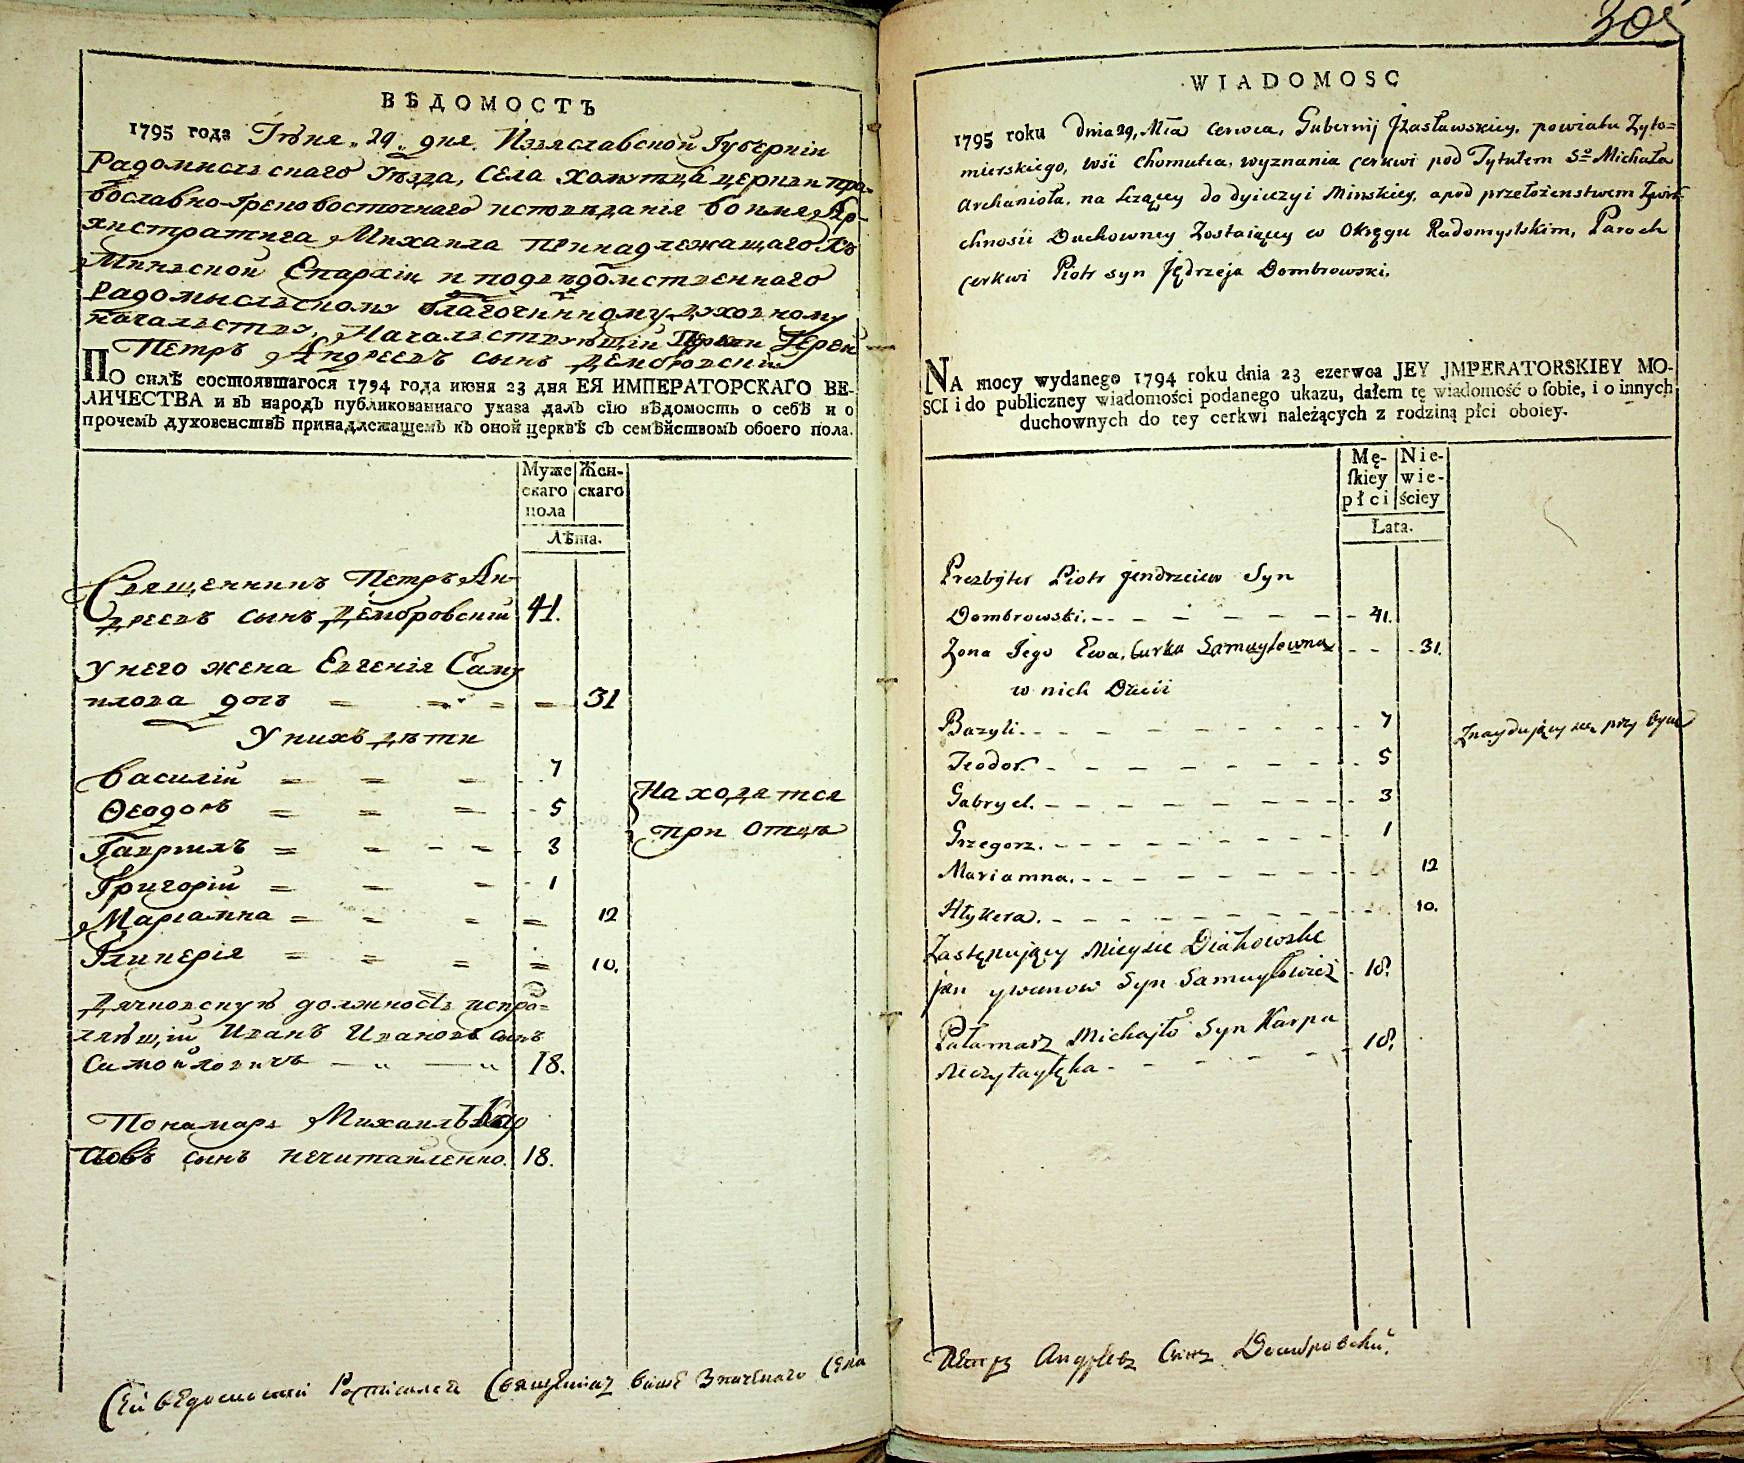 ВѢДОМОСТЬ
1795 года Іюня 29 дня Изяславской Губерніи
Радомысльскаго Уѣзда, Села Хомутца церкви пра-
вославно-Грековосточнаго исповѣданія во имя Ар-
хистратига Михаила принадлежащаго къ
Минской Епархіи и подвѣдомственнаго
Радомысльскому благочинному духовному
началству, Началствующій Іерей
Петръ Андреевъ сынъ Дембровскій
ПО силѣ состоявшагося 1794 года июня 23 дня ЕЯ ИМПЕРАТОРСКАГО ВЕ-
ЛИЧЕСТВА и въ народъ публикованнаго указа далъ сїю вѣдомость о себѣ и о
прочемъ духовенствѣ принадлежащемъ къ оной церквѣ съ семѣйствомъ обоего пола.
Муже Жен-
скаго скаго
пола
Лѣта.
Священникъ Петръ Ан-
дреевъ сынъ Дембровскій 41.
У него жена Евгенія Саму
илова дочь 31
У нихъ дѣти
Василій 7
Ѳеодоръ 5
Гавриилъ 3
Григорій 1
Маріамна 12
Гликерія 10.
Находятся
при Отцѣ
Дячковскую должность испра-
вляющій Иванъ Ивановъ сынъ
Самойловичъ 18.
Пономарь Михаилъ Кар
повъ сынъ Нечитайленко. 18.
Сей вѣдомости Росписался Священникъ више Значенаго Села
305
WIADOMOSC
1795 roku dnia 29, Mca Czerwca, Gubernij Jzasławskiey, powiatu Żyto=
mierskiego, wsi Chomutca, wyznania cerkwi pod Tytułem So Michała
Archanioła, na leżącey do dyiczyi Minskiey, a pod przełożenstwem Zwirz-
chnosii Duchowney Zostaiącey w Okręgu Radomyslskim, Paroch
cerkwi Piotr syn Jędrzeja Dombrowski.
NA mocy wydanego 1794 roku dnia 23 czerwca JEY JMPERATORSKIEY MO-
SCI i do publiczney wiadomości podanego ukazu, dałem tę wiadomość o sobie, i o innych
duchownych do tey cerkwi należących z rodziną płci oboiey.
Mę- Nie-
skiey wie-
płci ściey
Lata.
Prezbyter Piotr Jendrzeiew Syn
Dombrowski. 41.
Zona Jego Ewa, Curka Samuyłowna 31.
w nich Dzieci
Bazyli. 7
Teodor. 5
Gabryel. 3
Grzegorz. 1
Mariamna. 12
Hłykera. 10.
Znaydujący się przy Oycu
Zastępujący Mieysce Diakowskie
Jan Ywanow Syn Samuyłowicz 18.
Pałamarz Michajło Syn Karpa
Neczytayłęka 18.
Петръ Андрѣевъ Синъ Домбровскій.